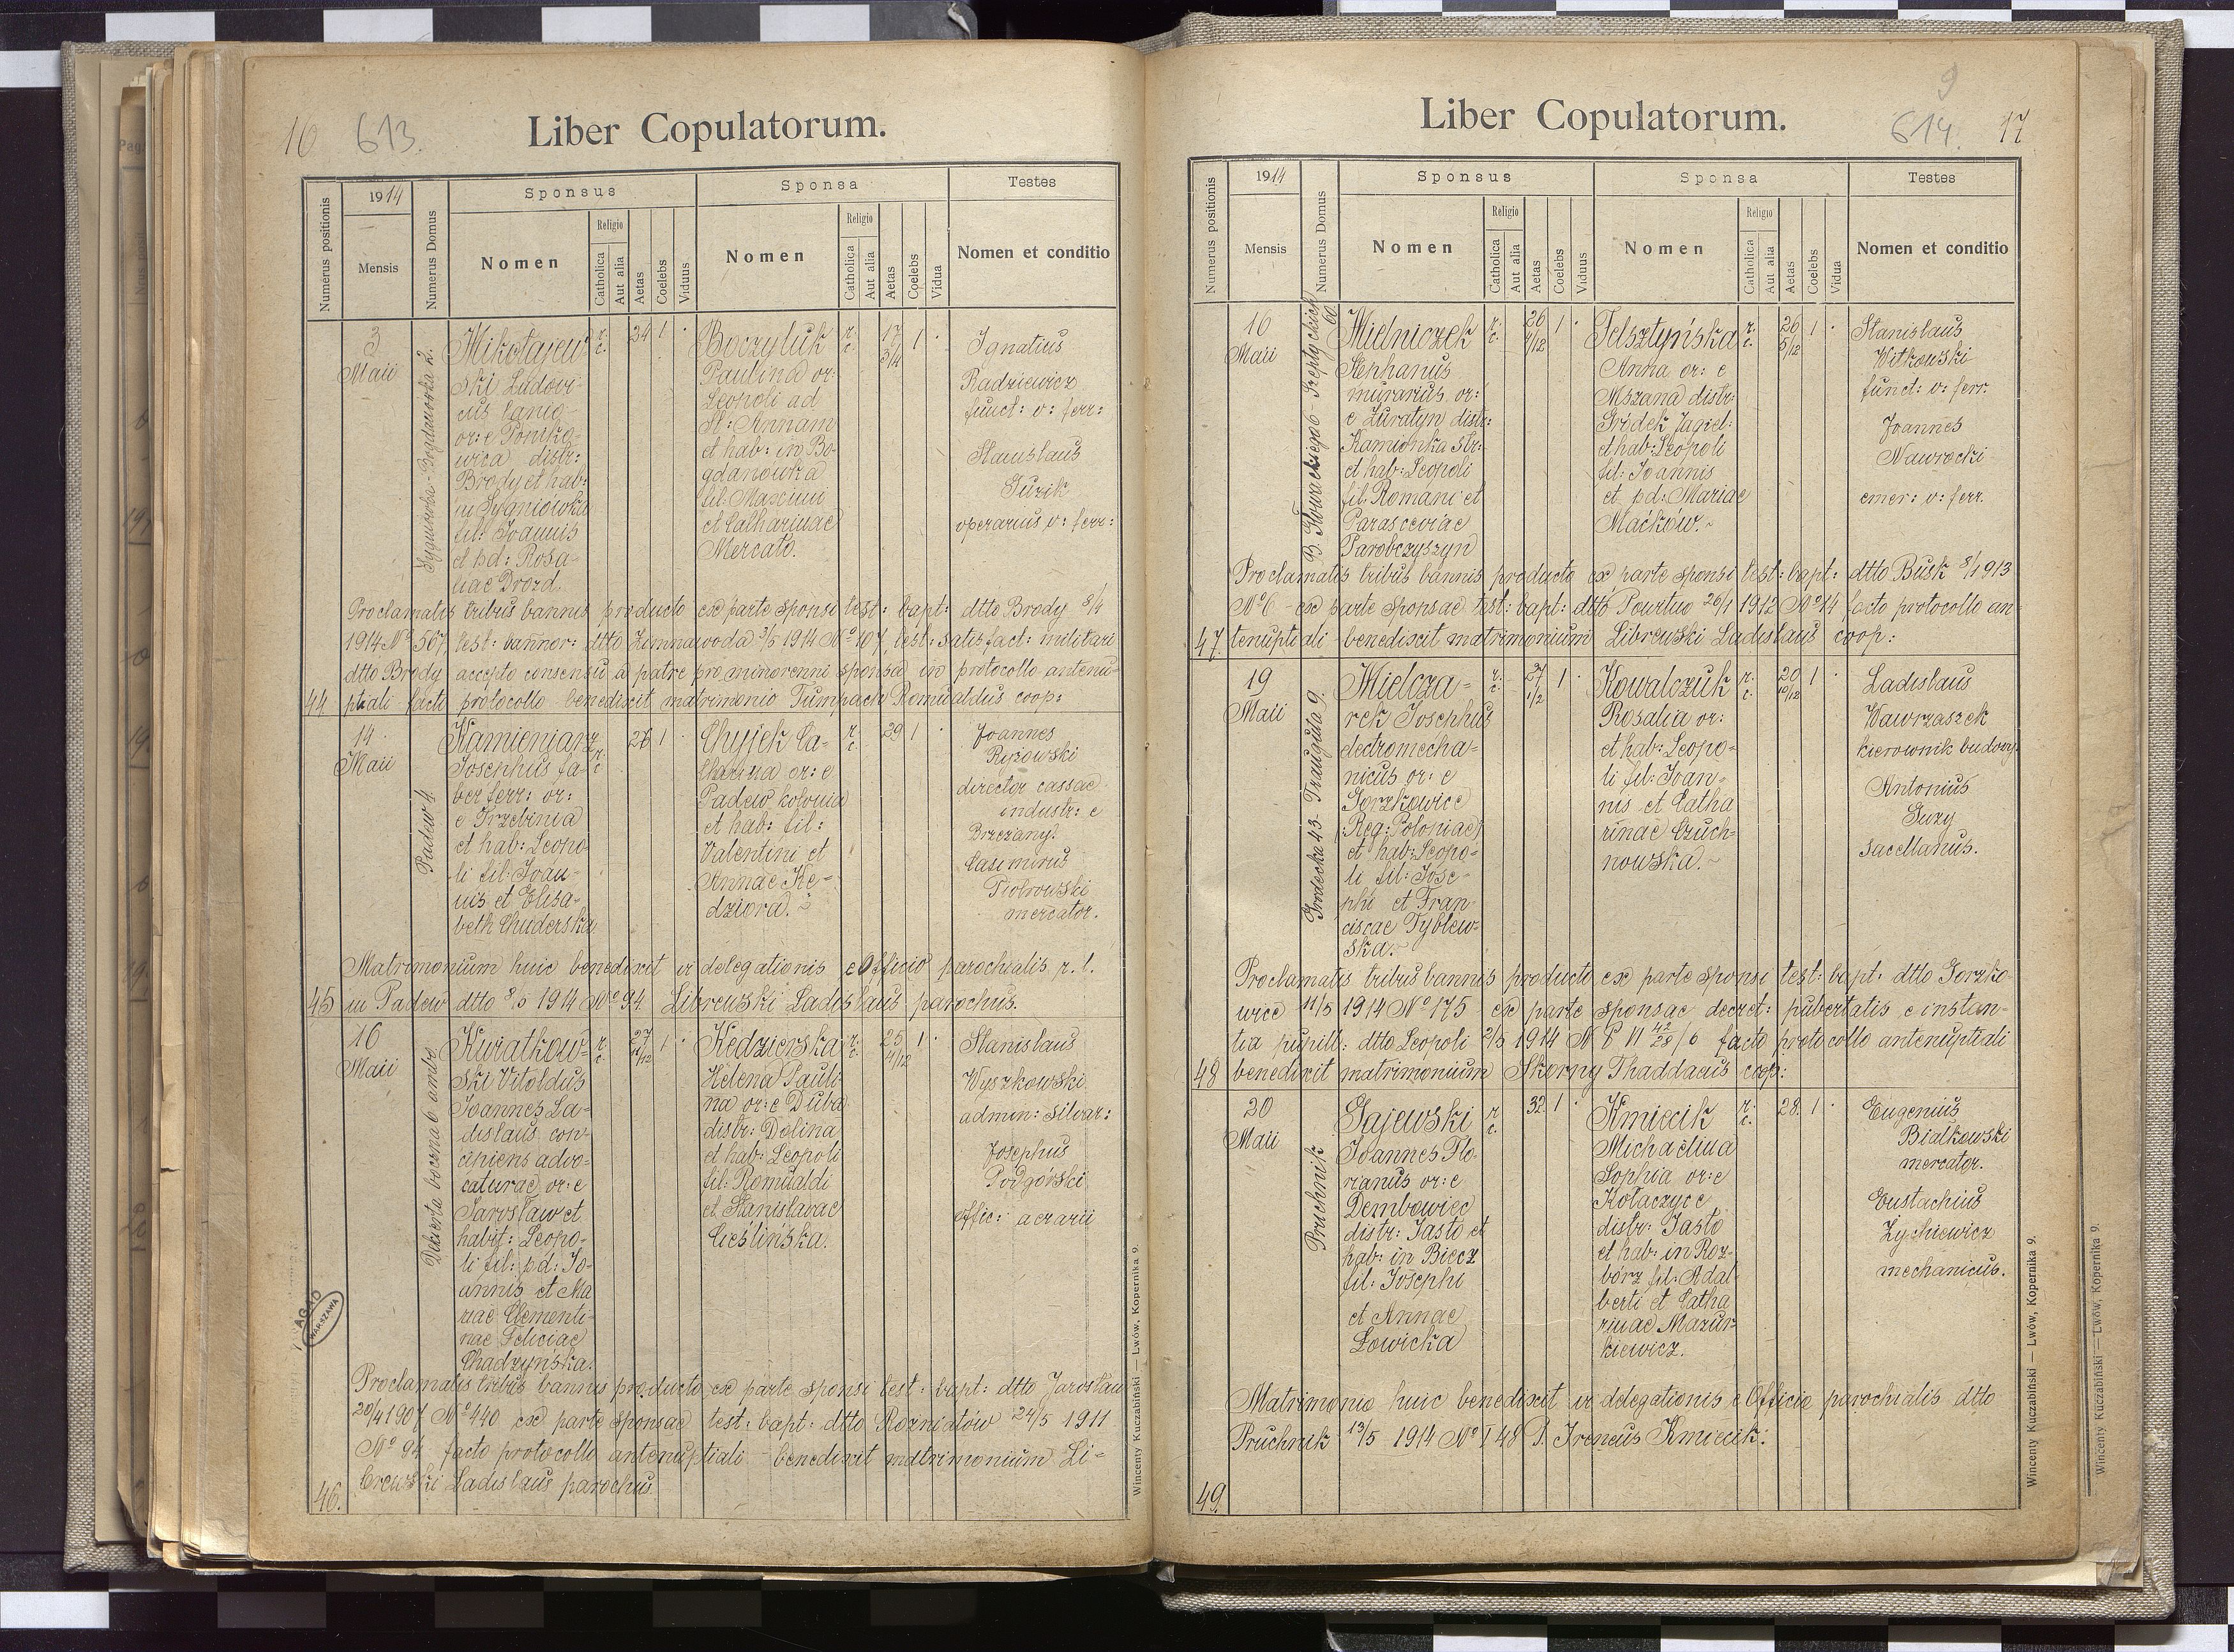 16 613.
Liber Copulatorum.
Numerus positionis
1914
Mensis
Numerus Domus
Sponsus
Nomen
Religio
Catholica
Aut alia
Aetas
Coelebs
Viduus
Sponsa
Nomen
Religio
Catholica
Aut alia
Aetas
Coelebs
Vidua
Testes
Nomen et conditio
3
Maii
Sygniówka - Bogdanówka 2.
Mikołajew
ski Ludovi-
cus lanio
or: e Poniko-
wica distr:
Brody et hab:
in Sygniówka
fil: Joannis
et pd: Rosa-
liae Drozd.
r. c.
34 1 .
Boczyluk
Paulina or:
Leopoli ad
St: Annam
et hab: in Bo-
gdanówka
fil: Maximi
et Catharinae
Mercato.
r. c.
17 3/4 1 .
Ignatius
Radziewicz
funct: v: ferr:
Stanislaus
Guzik
operarius v: ferr:
Proclamatis tribus bannis producto ex parte sponsi test: bapt: dtto Brody 8/4
1914 No 567, test: bannor: dtto Zimnawoda 3/5 1914 No 107, test: satisfact: militari
dtto Brody accepto consensu a patre pro minorenni sponsa in protocollo antenu-
44 ptiali facto protocollo benedixit matrimonio Tumpach Romualdus coop:
14
Maii
Padew 4.
Kamieniarz
Josephus fa-
ber ferr: or:
e Trzebinia
et hab: Leopo
li fil: Joan-
nis et Elisa-
beth Chuderska
r. c.
26 1 .
Chyjek Ca-
tharina or: e
Padew kolonia
et hab: fil:
Valentini et
Annae Kę-
dziora. ~
r. c.
29 1 .
Joannes
Ryżowski
director cassae
industr: e
Brzezany.
Casimirus
Piotrowski
mercator.
Matrimonium huic benedixit vi delegationis e Officio parochialis r. l.
45 in Padew dtto 8/5 1914 No 94 Librewski Ladislaus parochus.
16
Maii
Kwiatkow-
ski Vitoldus
Joannes La-
dislaus con-
cipiens advo-
caturae or: e
Jarosław et
habit: Leopo-
li fil: pd: Jo-
annis et Ma
riae Clementi-
nae Feliciae
Chadzyńska.
r. c.
27 1 .
Kędzierska
Helena Pauli
na or: e Duba
distr: Dolina
et hab: Leopoli
fil: Romualdi
et Stanislavae
Cieślińska.
r. c.
25 4/12 1 .
Stanislaus
Wyszkowski
admin: silvar:
Josephus
Podgórski
offic: aerarii
Proclamatis tribus bannis producto ex parte sponsi test: bapt: dtto Jarosław
20/4 1907 No 440 ex parte sponsae test: bapt: dtto Rożniatów 24/5 1911
No 94 facto protocollo antenuptiali - benedixit matrimonium Li-
46. brewski Ladislaus parochus
AGAD
WARSZAWA
Wincenty Kuczabiński — Lwów, Kopernika 9.
9
614. 17
Liber Copulatorum.
Numerus positionis
1914
Mensis
Numerus Domus
Sponsus
Nomen
Religio
Catholica
Aut alia
Aetas
Coelebs
Viduus
Sponsa
Nomen
Religio
Catholica
Aut alia
Aetas
Coelebs
Vidua
Testes
Nomen et conditio
16
Maii
Szeptyckich 60
Mielniczek
Stephanus
murarius or:
e Zuratyn distr:
Kamionka Str:
et hab: Leopoli
fil: Romani et
Parasceviae
Parobczyszyn
r. c.
26 4/12 1 .
Felsztyńska
Anna or: e
Mszana distr:
Gródek Jagiel:
et hab: Leopoli
fil: Joannis
et pd: Mariae
Maćków. ~
r. c.
26 5/12 1 .
Stanislaus
Witkowski
funct: v: ferr.
Joannes
Nawrocki
emer: v: ferr.
Proclamatis tribus bannis producto ex parte sponsi test: bapt: dtto Busk 8/1 1913
No 6 - ex parte sponsae test: bapt: dtto Powitno 26/1 1912 No 14 facto protocollo an-
47. tenuptiali - benedixit matrimonium Librewski Ladislaus coop:
19
Maii
Grodecka 43 - Traugutta 9.
Mielcza-
rek Josephus
electromecha-
nicus or: e
Gorzkowice
(Reg: Poloniae)
et hab: Leopo-
li fil: Jose-
phi et Fran-
ciscae Tyblew-
ska. ~
r. c.
27 1/2 1 .
Kowalczuk
Rosalia or:
et hab: Leopo-
li fil: Joan-
nis et Catha
rinae Czuch-
nowska. ~
r. c.
20 10/12 1 .
Ladislaus
Wawrzaszek
kierownik budowy.
Antonius
Guzy
sacellanus.
Proclamatis tribus bannis producto ex parte sponsi test: bapt: dtto Gorzko-
wice 11/5 1914 No 175 ex parte sponsae decret: pubertatis e instan-
tia pupill: dtto Leopoli 2/5 1914 facto protocollo antenuptiali
48 benedixit matrimonium Skorny Thaddaeus coop:
20
Maii
Pruchnik
Gajewski
Joannes Flo-
rianus or: e
Dembowiec
distr: Jasło et
hab: in Biecz
fil: Josephi
et Annae
Łowicka
r. c.
32 1 .
Kmiecik
Michaelina
Sophia or: e
Kołaczyce
distr: Jasło
et hab: in Roz-
bórz fil: Adal
berti et Catha
rinae Mazur-
kiewicz.
r. c.
28. 1 .
Eugenius
Białkowski
mercator.
Eustachius
Zychiewicz
mechanicus.
Matrimonio huic benedixit vi delegationis e Officio parochialis dtto
Pruchnik 13/5 1914 No I 48 P. Ireneus Kmiecik:
49.
Wincenty Kuczabiński — Lwów, Kopernika 9.
Wincenty Kuczabiński — Lwów, Kopernika 9.